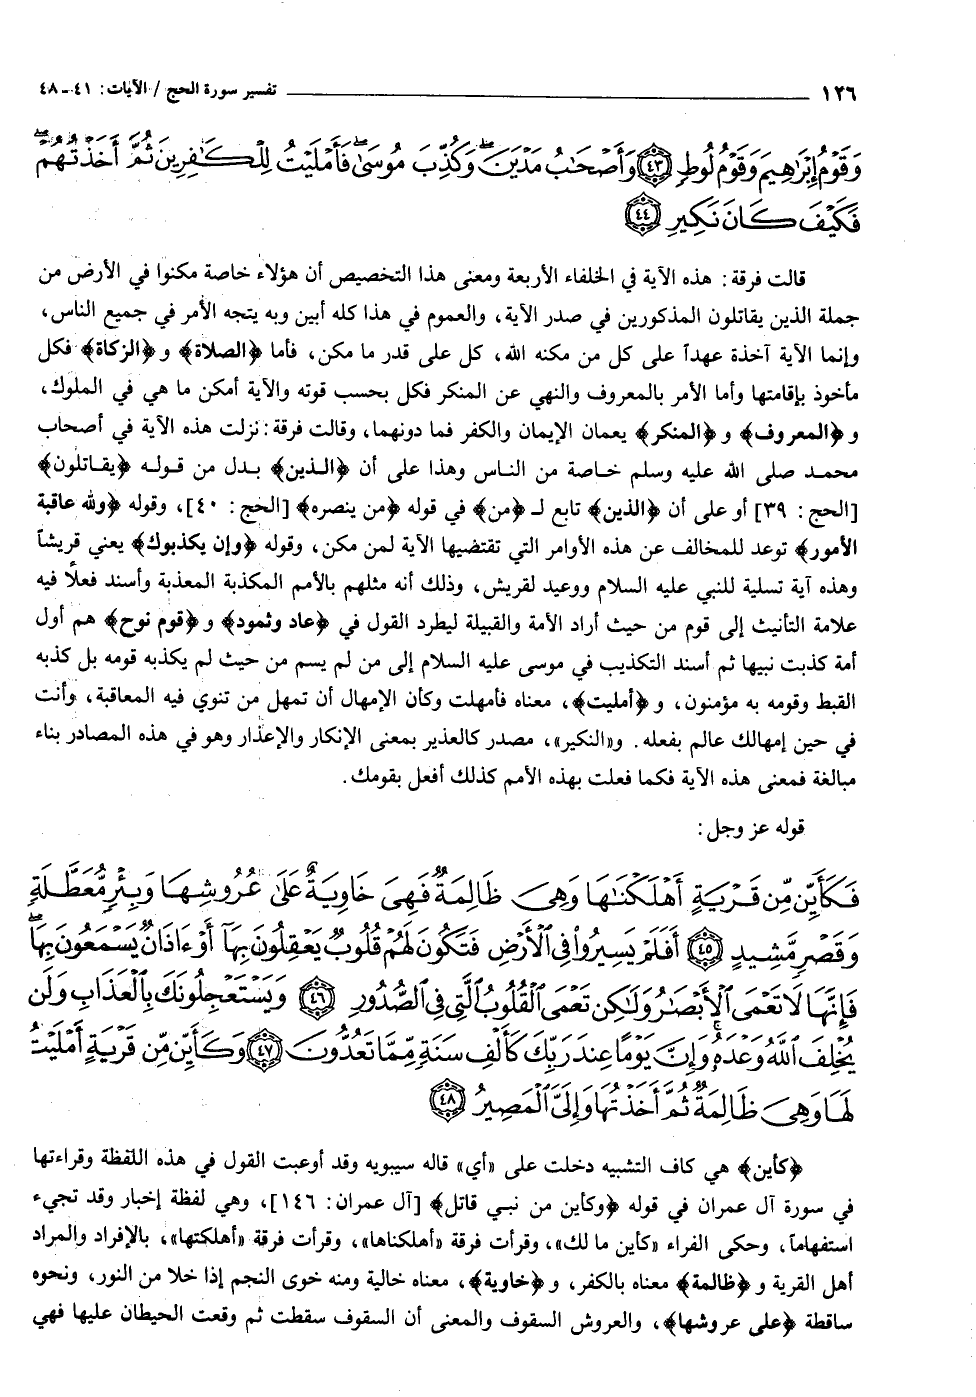 ١٢٦ تفسير سورة الحج / الآيات: ٤١ـ ٤٨
وَقَوْمُ إِبْرَاهِيمَ وَقَوْمُ لُوطٍ ﴿٤٣﴾ وَأَصْحَابُ مَدْيَنَ وَكُذِّبَ مُوسَىٰ فَأَمْلَيْتُ لِلْكَافِرِينَ ثُمَّ أَخَذْتُهُمْ
فَكَيْفَ كَانَ نَكِيرِ ﴿٤٤﴾
قالت فرقة: هذه الآية في الخلفاء الأربعة ومعنى هذا التخصيص أن هؤلاء خاصة مكنوا في الأرض من
جملة الذين يقاتلون المذكورين في صدر الآية، والعموم في هذا كله أبين وبه يتجه الأمر في جميع الناس،
وإنما الآية آخذة عهداً على كل من مكنه الله، كل على قدر ما مكن، فأما ﴿الصلاة﴾ و ﴿الزكاة﴾ فكل
مأخوذ بإقامتها وأما الأمر بالمعروف والنهي عن المنكر فكل بحسب قوته والآية أمكن ما هي في الملوك،
و ﴿المعروف﴾ و ﴿المنكر﴾ يعمان الإيمان والكفر فما دونهما، وقالت فرقة: نزلت هذه الآية في أصحاب
محمد صلى الله عليه وسلم خاصة من الناس وهذا على أن ﴿الذين﴾ بدل من قوله ﴿يقاتلون﴾
[الحج: ٣٩] أو على أن ﴿الذين﴾ تابع لـ ﴿من﴾ في قوله ﴿من ينصره﴾ [الحج: ٤٠]، وقوله ﴿ولله عاقبة
الأمور﴾ توعد للمخالف عن هذه الأوامر التي تقتضيها الآية لمن مكن، وقوله ﴿وإن يكذبوك﴾ يعني قريشاً
وهذه آية تسلية للنبي عليه السلام ووعيد لقريش، وذلك أنه مثلهم بالأمم المكذبة المعذبة وأسند فعلاً فيه
علامة التأنيث إلى قوم من حيث أراد الأمة والقبيلة ليطرد القول في ﴿عاد وثمود﴾ و ﴿قوم نوح﴾ هم أول
أمة كذبت نبيها ثم أسند التكذيب في موسى عليه السلام إلى من لم يسم من حيث لم يكذبه قومه بل كذبه
القبط وقومه به مؤمنون، و ﴿أمليت﴾، معناه فأمهلت وكأن الإمهال أن تمهل من تنوي فيه المعاقبة، وأنت
في حين إمهالك عالم بفعله. و«النكير»، مصدر كالعذير بمعنى الإنكار والإعذار وهو في هذه المصادر بناء
مبالغة فمعنى هذه الآية فكما فعلت بهذه الأمم كذلك أفعل بقومك.
قوله عز وجل:
فَكَأَيِّن مِّن قَرْيَةٍ أَهْلَكْنَاهَا وَهِيَ ظَالِمَةٌ فَهِيَ خَاوِيَةٌ عَلَىٰ عُرُوشِهَا وَبِئْرٍ مُّعَطَّلَةٍ
وَقَصْرٍ مَّشِيدٍ ﴿٤٥﴾ أَفَلَمْ يَسِيرُوا فِي الْأَرْضِ فَتَكُونَ لَهُمْ قُلُوبٌ يَعْقِلُونَ بِهَا أَوْ ءَاذَانٌ يَسْمَعُونَ بِهَا
فَإِنَّهَا لَا تَعْمَى الْأَبْصَارُ وَلَٰكِن تَعْمَى الْقُلُوبُ الَّتِي فِي الصُّدُورِ ﴿٤٦﴾ وَيَسْتَعْجِلُونَكَ بِالْعَذَابِ وَلَن
يُخْلِفَ اللَّهُ وَعْدَهُ وَإِنَّ يَوْمًا عِندَ رَبِّكَ كَأَلْفِ سَنَةٍ مِّمَّا تَعُدُّونَ ﴿٤٧﴾ وَكَأَيِّن مِّن قَرْيَةٍ أَمْلَيْتُ
لَهَا وَهِيَ ظَالِمَةٌ ثُمَّ أَخَذْتُهَا وَإِلَيَّ الْمَصِيرُ ﴿٤٨﴾
﴿كأين﴾ هي كاف التشبيه دخلت على «أي» قاله سيبويه وقد أوعبت القول في هذه اللفظة وقراءتها
في سورة آل عمران في قوله ﴿وكأين من نبي قاتل﴾ [آل عمران: ١٤٦]، وهي لفظة إخبار وقد تجيء
استفهاماً، وحكى الفراء «كأين ما لك»، وقرأت فرقة «أهلكناها»، وقرأت فرقة «أهلكتها»، بالإفراد والمراد
أهل القرية و ﴿ظالمة﴾ معناه بالكفر، و ﴿خاوية﴾، معناه خالية ومنه خوى النجم إذا خلا من النور، ونحوه
ساقطة ﴿على عروشها﴾، والعروش السقوف والمعنى أن السقوف سقطت ثم وقعت الحيطان عليها فهي